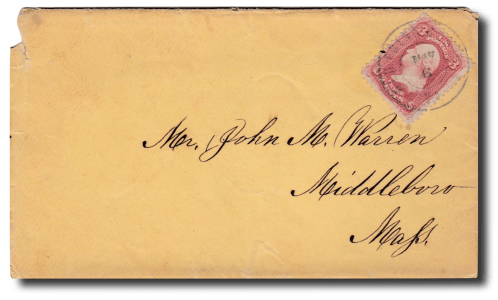 NOV
6
3 3
Mr. John M. Warren
Middleboro
Maſs.